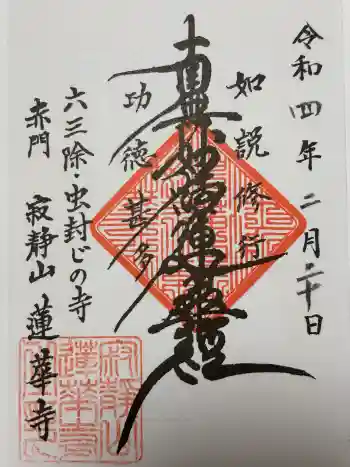 令和四年二月二十日
如説修行
南無妙法蓮華経
功徳甚多
六三除・虫封じの寺
赤門 寂静山 蓮華寺